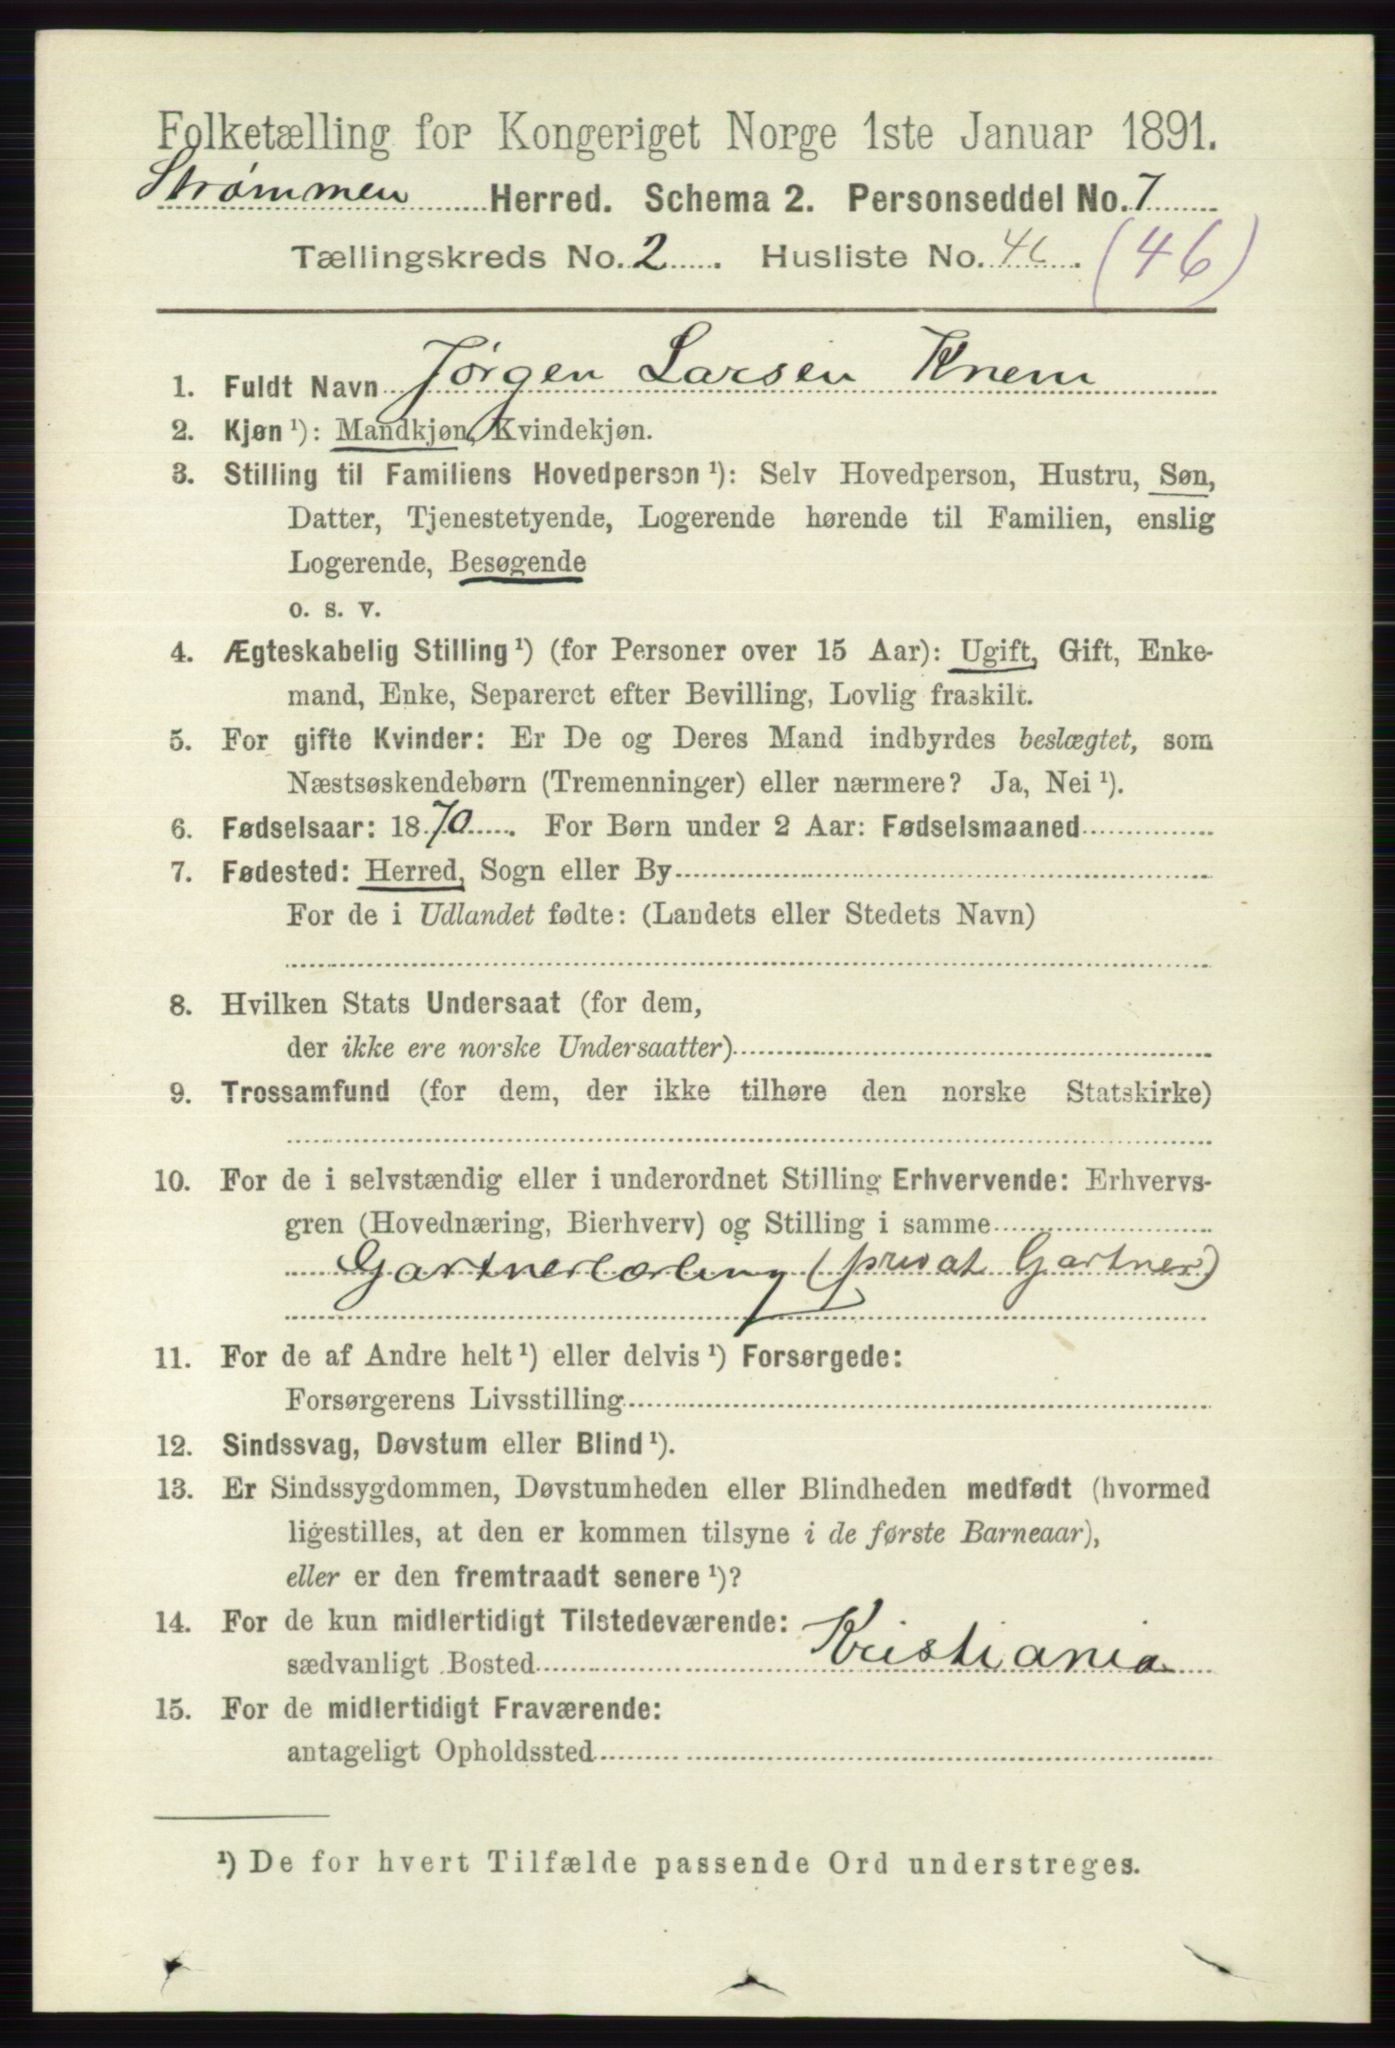 Folketælling for Kongeriget Norge 1ste Januar 1891.
Strømmen Herred. Schema 2. Personseddel No. 7
Tællingskreds No. 2. Husliste No. 46. (46)
1. Fuldt Navn Jørgen Larsen Knem
2. Kjøn ¹): Mandkjøn, Kvindekjøn.
3. Stilling til Familiens Hovedperson ¹): Selv Hovedperson, Hustru, Søn,
Datter, Tjenestetyende, Logerende hørende til Familien, enslig
Logerende, Besøgende
o. s. v.
4. Ægteskabelig Stilling ¹) (for Personer over 15 Aar): Ugift, Gift, Enke-
mand, Enke, Separeret efter Bevilling, Lovlig fraskilt.
5. For gifte Kvinder: Er De og Deres Mand indbyrdes beslægtet, som
Næstsøskendebørn (Tremenninger) eller nærmere? Ja, Nei ¹).
6. Fødselsaar: 1870. For Børn under 2 Aar: Fødselsmaaned
7. Fødested: Herred, Sogn eller By
For de i Udlandet fødte: (Landets eller Stedets Navn)
8. Hvilken Stats Undersaat (for dem,
der ikke ere norske Undersaatter)
9. Trossamfund (for dem, der ikke tilhøre den norske Statskirke)
10. For de i selvstændig eller i underordnet Stilling Erhvervende: Erhvervs-
gren (Hovednæring, Bierhverv) og Stilling i samme
Gartnerlærling (privat Gartner)
11. For de af Andre helt ¹) eller delvis ¹) Forsørgede:
Forsørgerens Livsstilling
12. Sindssvag, Døvstum eller Blind ¹).
13. Er Sindssygdommen, Døvstumheden eller Blindheden medfødt (hvormed
ligestilles, at den er kommen tilsyne i de første Barneaar),
eller er den fremtraadt senere ¹)?
14. For de kun midlertidigt Tilstedeværende:
sædvanligt Bosted Kristiania
15. For de midlertidigt Fraværende:
antageligt Opholdssted
¹) De for hvert Tilfælde passende Ord understreges.